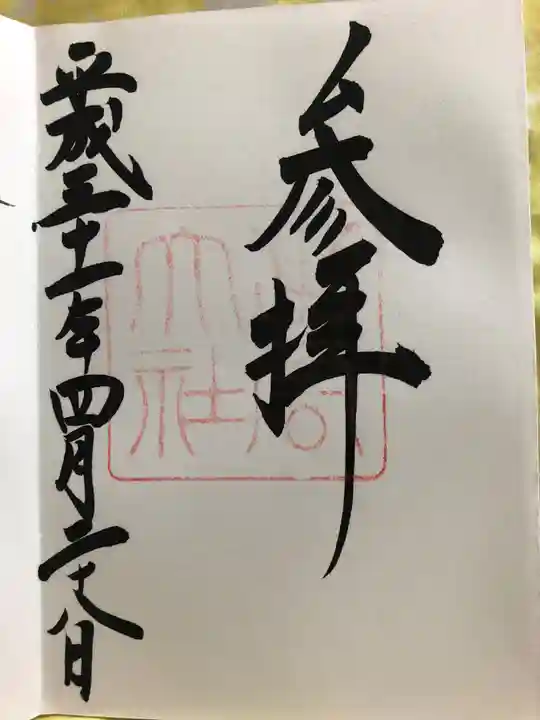 参拝
大社
平成三十一年四月二十八日